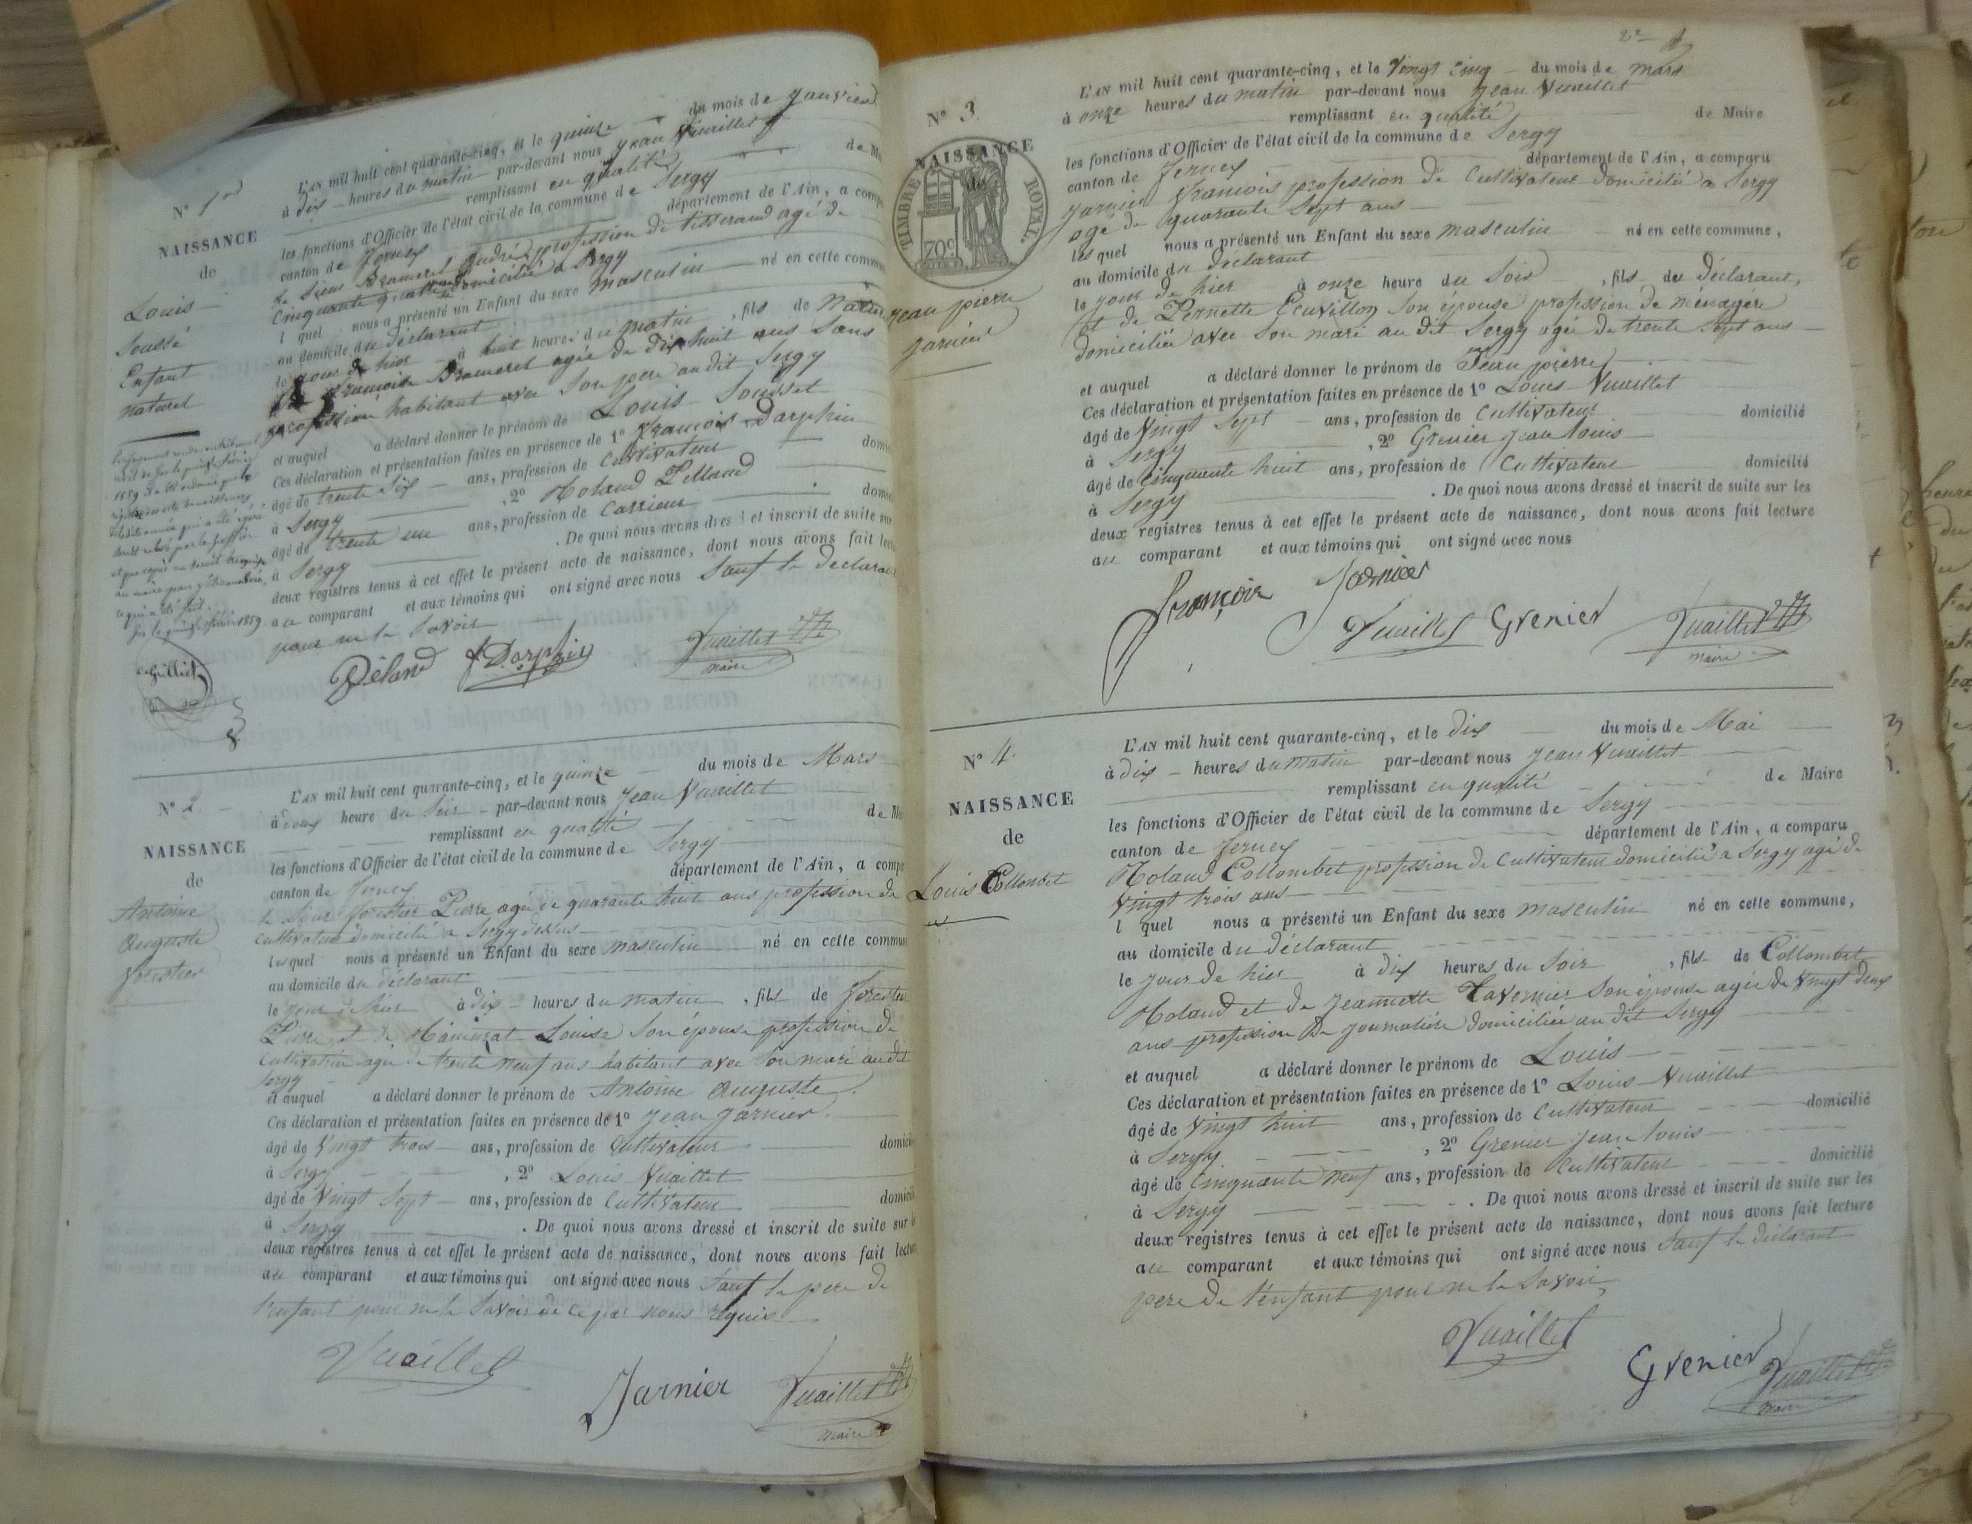 N° 1er
NAISSANCE
de
Louis
Soussé
Enfant
naturel
L'AN mil huit cent quarante-cinq, et le quinze du mois de Janvier
à dix heures du matin par-devant nous Jean Vuaillet
remplissant en qualité de M
les fonctions d'Officier de l'état civil de la commune de Sergy
canton de Ferney département de l'Ain, a compa
le Sieur Brameret André profession de tisserand agé de
Cinquante quatre domicilié à Sergy
l quel nous a présenté un Enfant du sexe masculin né en cette commu
au domicile du déclarant
le jour de hier à huit heures du matin, fils de
françoise Brameret agée de dix huit ans sans
profession habitant avec son pere au dit Sergy
et auquel a déclaré donner le prénom de Louis Sousset
Ces déclaration et présentation faites en présence de 1° françois Darphin
âgé de trente six ans, profession de Cultivateur domi
à Sergy, 2° Roland Pelland
âgé de trente un ans, profession de Carrieur domi
à Sergy. De quoi nous avons dressé et inscrit de suite sur
deux registres tenus à cet effet le présent acte de naissance, dont nous avons fait lect
au comparant et aux témoins qui ont signé avec nous Sauf le declarant
pour ne le Savoir
Pélané f. Darphin Vuaillet
maire
N° 2
NAISSANCE
de
Antoine
Auguste
forestier
L'AN mil huit cent quarante-cinq, et le quinze du mois de Mars
à deux heure du Soir par-devant nous Jean Vuaillet
remplissant en qualité de M
les fonctions d'Officier de l'état civil de la commune de Sergy
canton de Ferney département de l'Ain, a compa
le Sieur forestier Pierre agé de quarante huit ans profession de
cultivateur domicilié a Sergy dessus
lesquel nous a présenté un Enfant du sexe masculin né en cette commun
au domicile du déclarant
le jour de hier à dix heures du matin, fils de forestier
Pierre et de Louise Son épouse profession de
Cultivatrice agée de trente neuf ans habitant avec son mari au dit
Sergy
et auquel a déclaré donner le prénom de Antoine Auguste
Ces déclaration et présentation faites en présence de 1° Jean Jarnier
âgé de Vingt trois ans, profession de Cultivateur domici
à Sergy, 2° Louis Vuaillet
âgé de Vingt Sept ans, profession de Cultivateur domicili
à Sergy. De quoi nous avons dressé et inscrit de suite sur l
deux registres tenus à cet effet le présent acte de naissance, dont nous avons fait lectu
au comparant et aux témoins qui ont signé avec nous Sauf le pere de
l'enfant pour ne le Savoir de ce par nous requis
Vuaillet
Jarnier Vuaillet
maire
N° 3
NAISSANCE
de
TIMBRE ROYAL.
70c
Jean pierre
Jarnier
L'AN mil huit cent quarante-cinq, et le Vingt Cinq du mois de mars
à onze heures du matin par-devant nous Jean Vuaillet
remplissant en qualité de Maire
les fonctions d'Officier de l'état civil de la commune de Sergy
canton de Ferney département de l'Ain, a comparu
Jarnier francois profession de Cultivateur domicilié a Sergy
agé de quarante Sept ans
lesquel nous a présenté un Enfant du sexe masculin né en cette commune,
au domicile du déclarant
le jour de hier à onze heure du Soir, fils du déclarant,
Et de Pernette Ecuvillon Son épouse profession de ménagère
domiciliée avec Son mari au dit Sergy agée de trente Sept ans
et auquel a déclaré donner le prénom de Jean pierre
Ces déclaration et présentation faites en présence de 1° Louis Vuaillet
âgé de Vingt Sept ans, profession de Cultivateur domicilié
à Sergy, 2° Grenier Jean Louis
âgé de Cinquante huit ans, profession de Cultivateur domicilié
à Sergy. De quoi nous avons dressé et inscrit de suite sur les
deux registres tenus à cet effet le présent acte de naissance, dont nous avons fait lecture
au comparant et aux témoins qui ont signé avec nous
françois Jarnier
Vuaillet Grenier Vuaillet
maire
N° 4
NAISSANCE
de
Louis Collombet
L'AN mil huit cent quarante-cinq, et le dix du mois de Mai
à dix heures du matin par-devant nous Jean Vuaillet
remplissant en qualité de Maire
les fonctions d'Officier de l'état civil de la commune de Sergy
canton de Ferney département de l'Ain, a comparu
Roland Collombet profession de Cultivateur domicilié a Sergy agé de
Vingt trois ans
l quel nous a présenté un Enfant du sexe masculin né en cette commune,
au domicile du déclarant
le jour de hier à dix heures du Soir, fils de Collombet
Roland et de Jeannette Tavernier Son épouse agée de Vingt deux
ans profession de Journalière domiciliée au dit Sergy
et auquel a déclaré donner le prénom de Louis
Ces déclaration et présentation faites en présence de 1° Louis Vuaillet
âgé de Vingt huit ans, profession de Cultivateur domicilié
à Sergy, 2° Grenier Jean Louis
âgé de Cinquante neuf ans, profession de Cultivateur domicilié
à Sergy. De quoi nous avons dressé et inscrit de suite sur les
deux registres tenus à cet effet le présent acte de naissance, dont nous avons fait lecture
au comparant et aux témoins qui ont signé avec nous Sauf le déclarant
pere de l'enfant pour ne le Savoir
Vuaillet
Grenier Vuaillet
maire